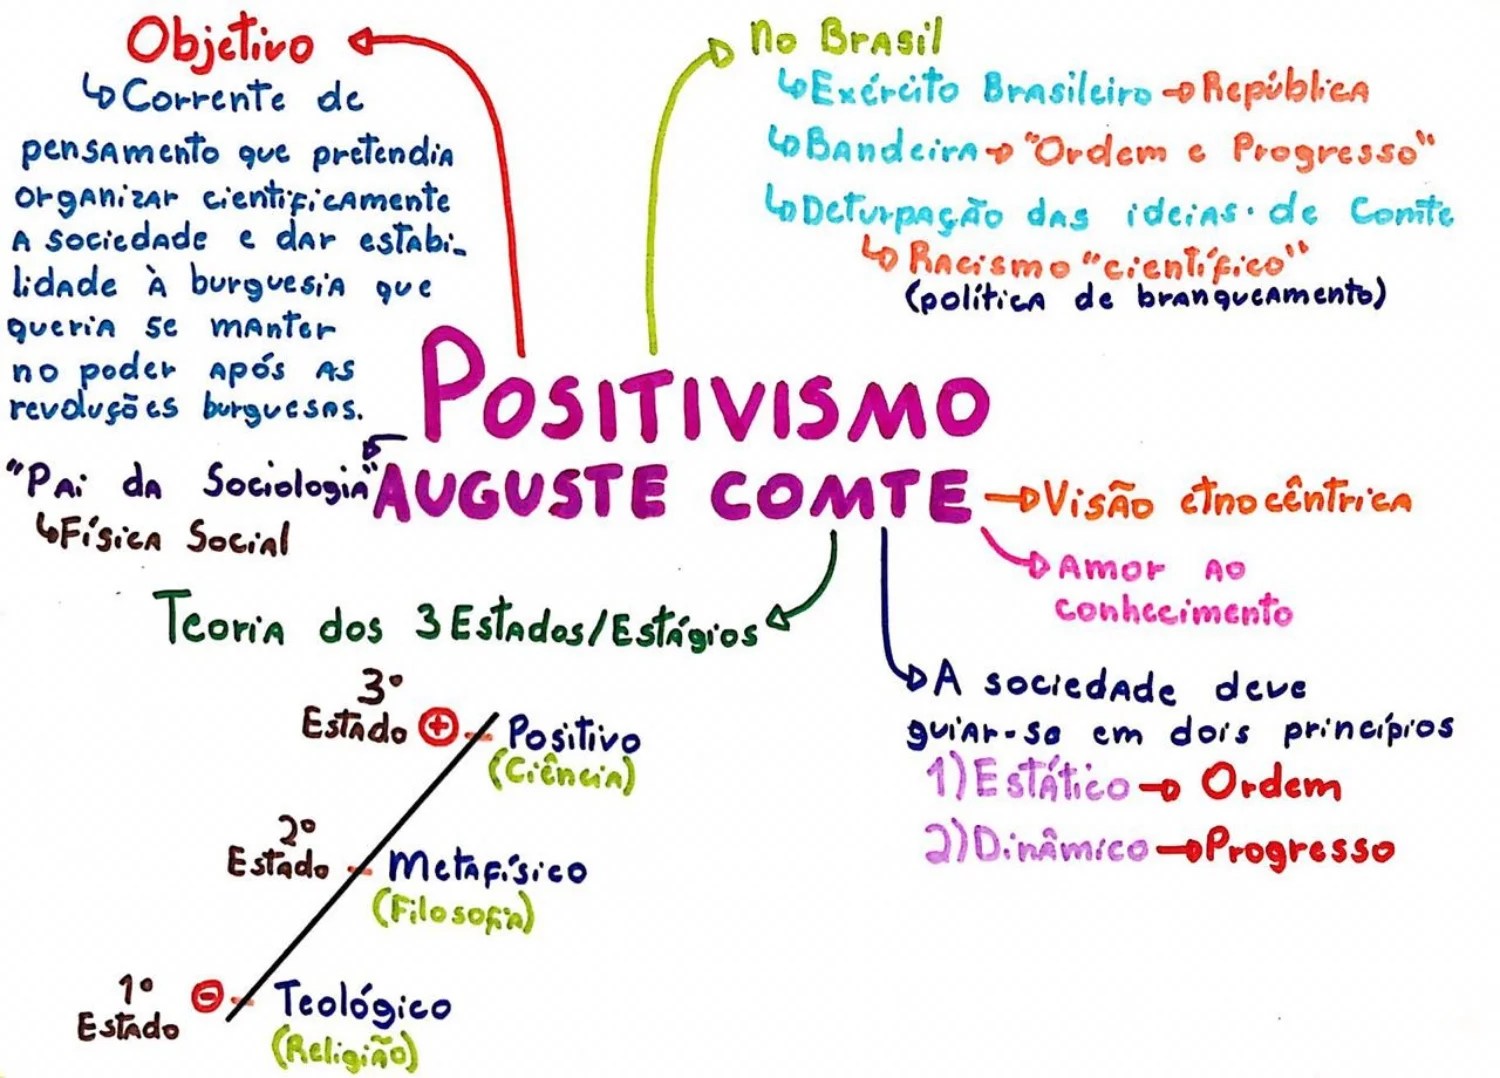 Objetivo
↳Corrente de
pensamento que pretendia
organizar cientificamente
a sociedade e dar estabi-
lidade à burguesia que
queria se manter
no poder após as
revoluções burguesas.
No Brasil
↳Exército Brasileiro→República
↳Bandeira→"Ordem e Progresso"
↳Deturpação das ideias de Comte
↳Racismo "científico"
(política de branqueamento)
POSITIVISMO
AUGUSTE COMTE
"Pai da Sociologia"
↳Física Social
→Visão etnocêntrica
Amor ao
conhecimento
Teoria dos 3 Estados/Estágios
3º
Estado + Positivo
(Ciência)
2º
Estado Metafísico
(Filosofia)
1º
Estado - Teológico
(Religião)
A sociedade deve
guiar-se em dois princípios
1)Estático→Ordem
2)Dinâmico→Progresso